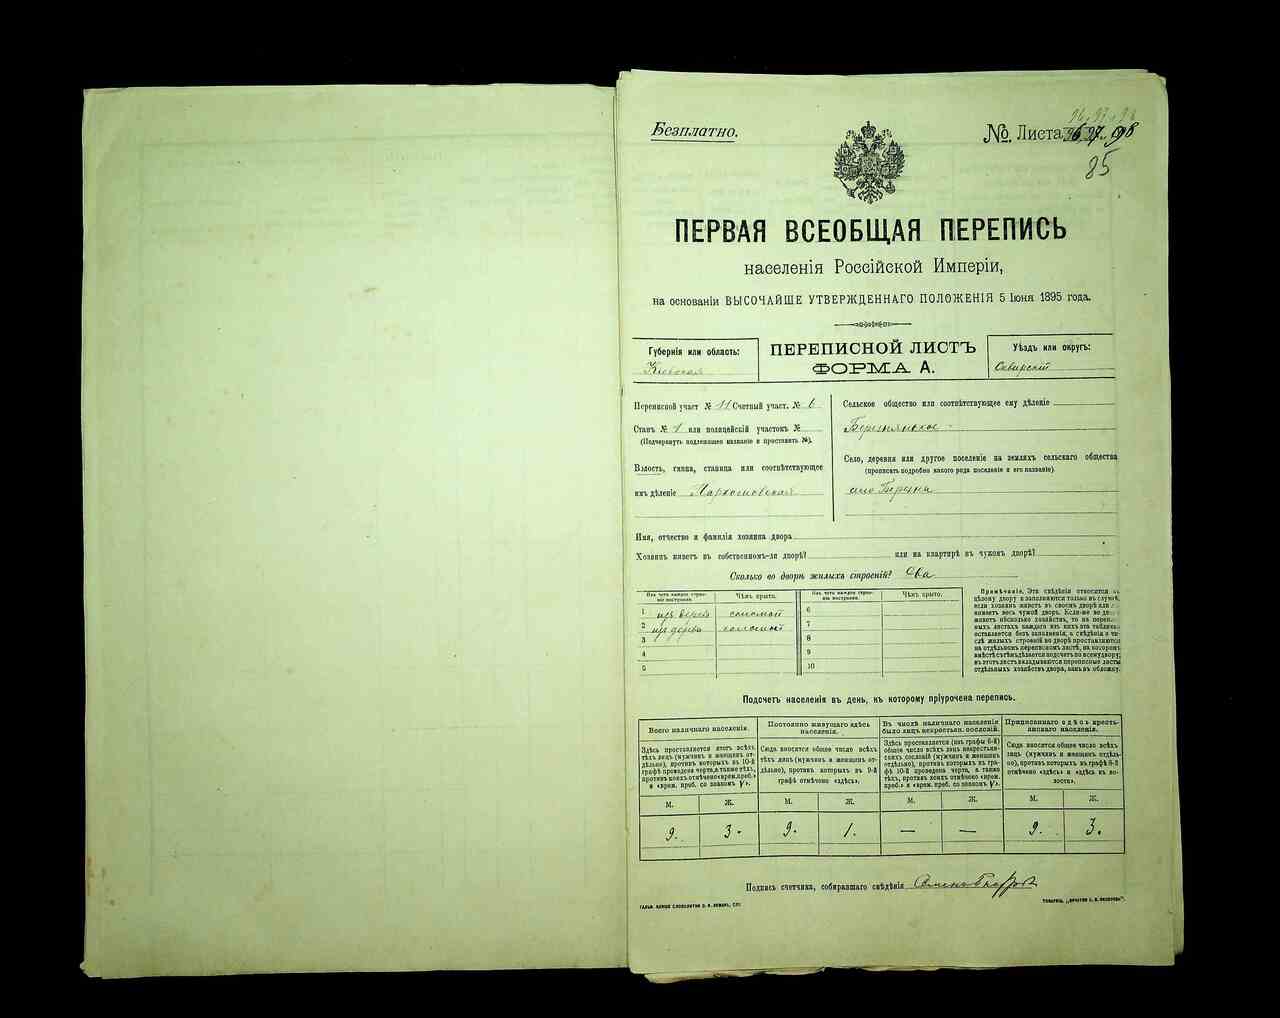 Безплатно.
№. Листа 96, 97 и 98
85
ПЕРВАЯ ВСЕОБЩАЯ ПЕРЕПИСЬ
населенія Россійской Имперіи,
на основаніи ВЫСОЧАЙШЕ УТВЕРЖДЕННАГО ПОЛОЖЕНІЯ 5 Іюня 1895 года.
Губернія или область:
Кіевская
ПЕРЕПИСНОЙ ЛИСТЪ
ФОРМА А.
Уѣздъ или округъ:
Сквирскій
Переписной участ № 11 Счетный участ. № 6
Станъ № 1 или полицейскій участокъ №
(Подчеркнуть подлежащее названіе и проставить №).
Волость, гмина, станица или соотвѣтствующее
имъ дѣленіе
Сельское общество или соотвѣтствующее ему дѣленіе
Село, деревня или другое поселеніе на земляхъ сельскаго общества
(прописать подробно какого рода поселеніе и его названіе).
село
Имя, отчество и фамилія хозяина двора
Хозяинъ живетъ въ собственномъ-ли дворѣ? или на квартирѣ въ чужомъ дворѣ?
Сколько во дворѣ жилыхъ строеній? Два
Изъ чего каждое строеніе построено. Чѣмъ крыто.
1 изъ дерева соломой
2 изъ дерева соломой
3
4
5
Изъ чего каждое строеніе построено. Чѣмъ крыто.
6
7
8
9
10
Примѣчаніе. Эта свѣдѣнія относятся къ
цѣлому двору и заполняются только въ случаѣ,
если хозяинъ живетъ въ своемъ дворѣ или
нимаетъ весь чужой дворъ. Если-же во дворѣ
живетъ нѣсколько хозяйствъ, то на
ныхъ листахъ каждаго изъ нихъ эта табличка
оставляется безъ заполненія, а свѣдѣнія о чи-
слѣ жилыхъ строеній во дворѣ проставляются
на отдѣльномъ переписномъ листѣ, на которомъ
вмѣстѣ съ тѣмъ дѣлается подсчетъ по всему двору;
въ этотъ листъ вкладываются переписные листы
отдѣльныхъ хозяйствъ двора, какъ въ обложку.
Подсчетъ населенія въ день, къ которому пріурочена перепись.
Всего наличнаго населенія.
Здѣсь проставляется итогъ всѣхъ
тѣхъ лицъ (мужчинъ и женщинъ от-
дѣльно), противъ которыхъ въ 10-й
графѣ проведена черта, а также тѣхъ,
противъ коихъ отмѣчено «врем. преб.»
и «врем. преб. со знакомъ V».
Постоянно живущаго здѣсь
населенія.
Сюда вносится общее число всѣхъ
тѣхъ лицъ (мужчинъ и женщинъ от-
дѣльно), противъ которыхъ въ 9-й
графѣ отмѣчено «здѣсь».
Въ числѣ наличнаго населенія
было лицъ некрестьян. сословій.
Здѣсь проставляется (изъ графы 6-й)
общее число всѣхъ лицъ некрестьян-
скихъ сословій (мужчинъ и женщинъ
отдѣльно), противъ которыхъ въ гра-
фѣ 10-й проведена черта, а также
противъ коихъ отмѣчено «врем.
преб.» и «врем. преб. со знакомъ V».
Приписаннаго здѣсь кресть-
янскаго населенія.
Сюда вносится общее число всѣхъ
лицъ (мужчинъ и женщинъ отдѣль-
но), противъ которыхъ въ графѣ 8-й
отмѣчено «здѣсь» и «здѣсь въ во-
лости».
М. Ж. М. Ж. М. Ж. М. Ж.
9. 3. 9. 1. — — 9. 3.
Подпись счетчика, собиравшаго свѣдѣнія